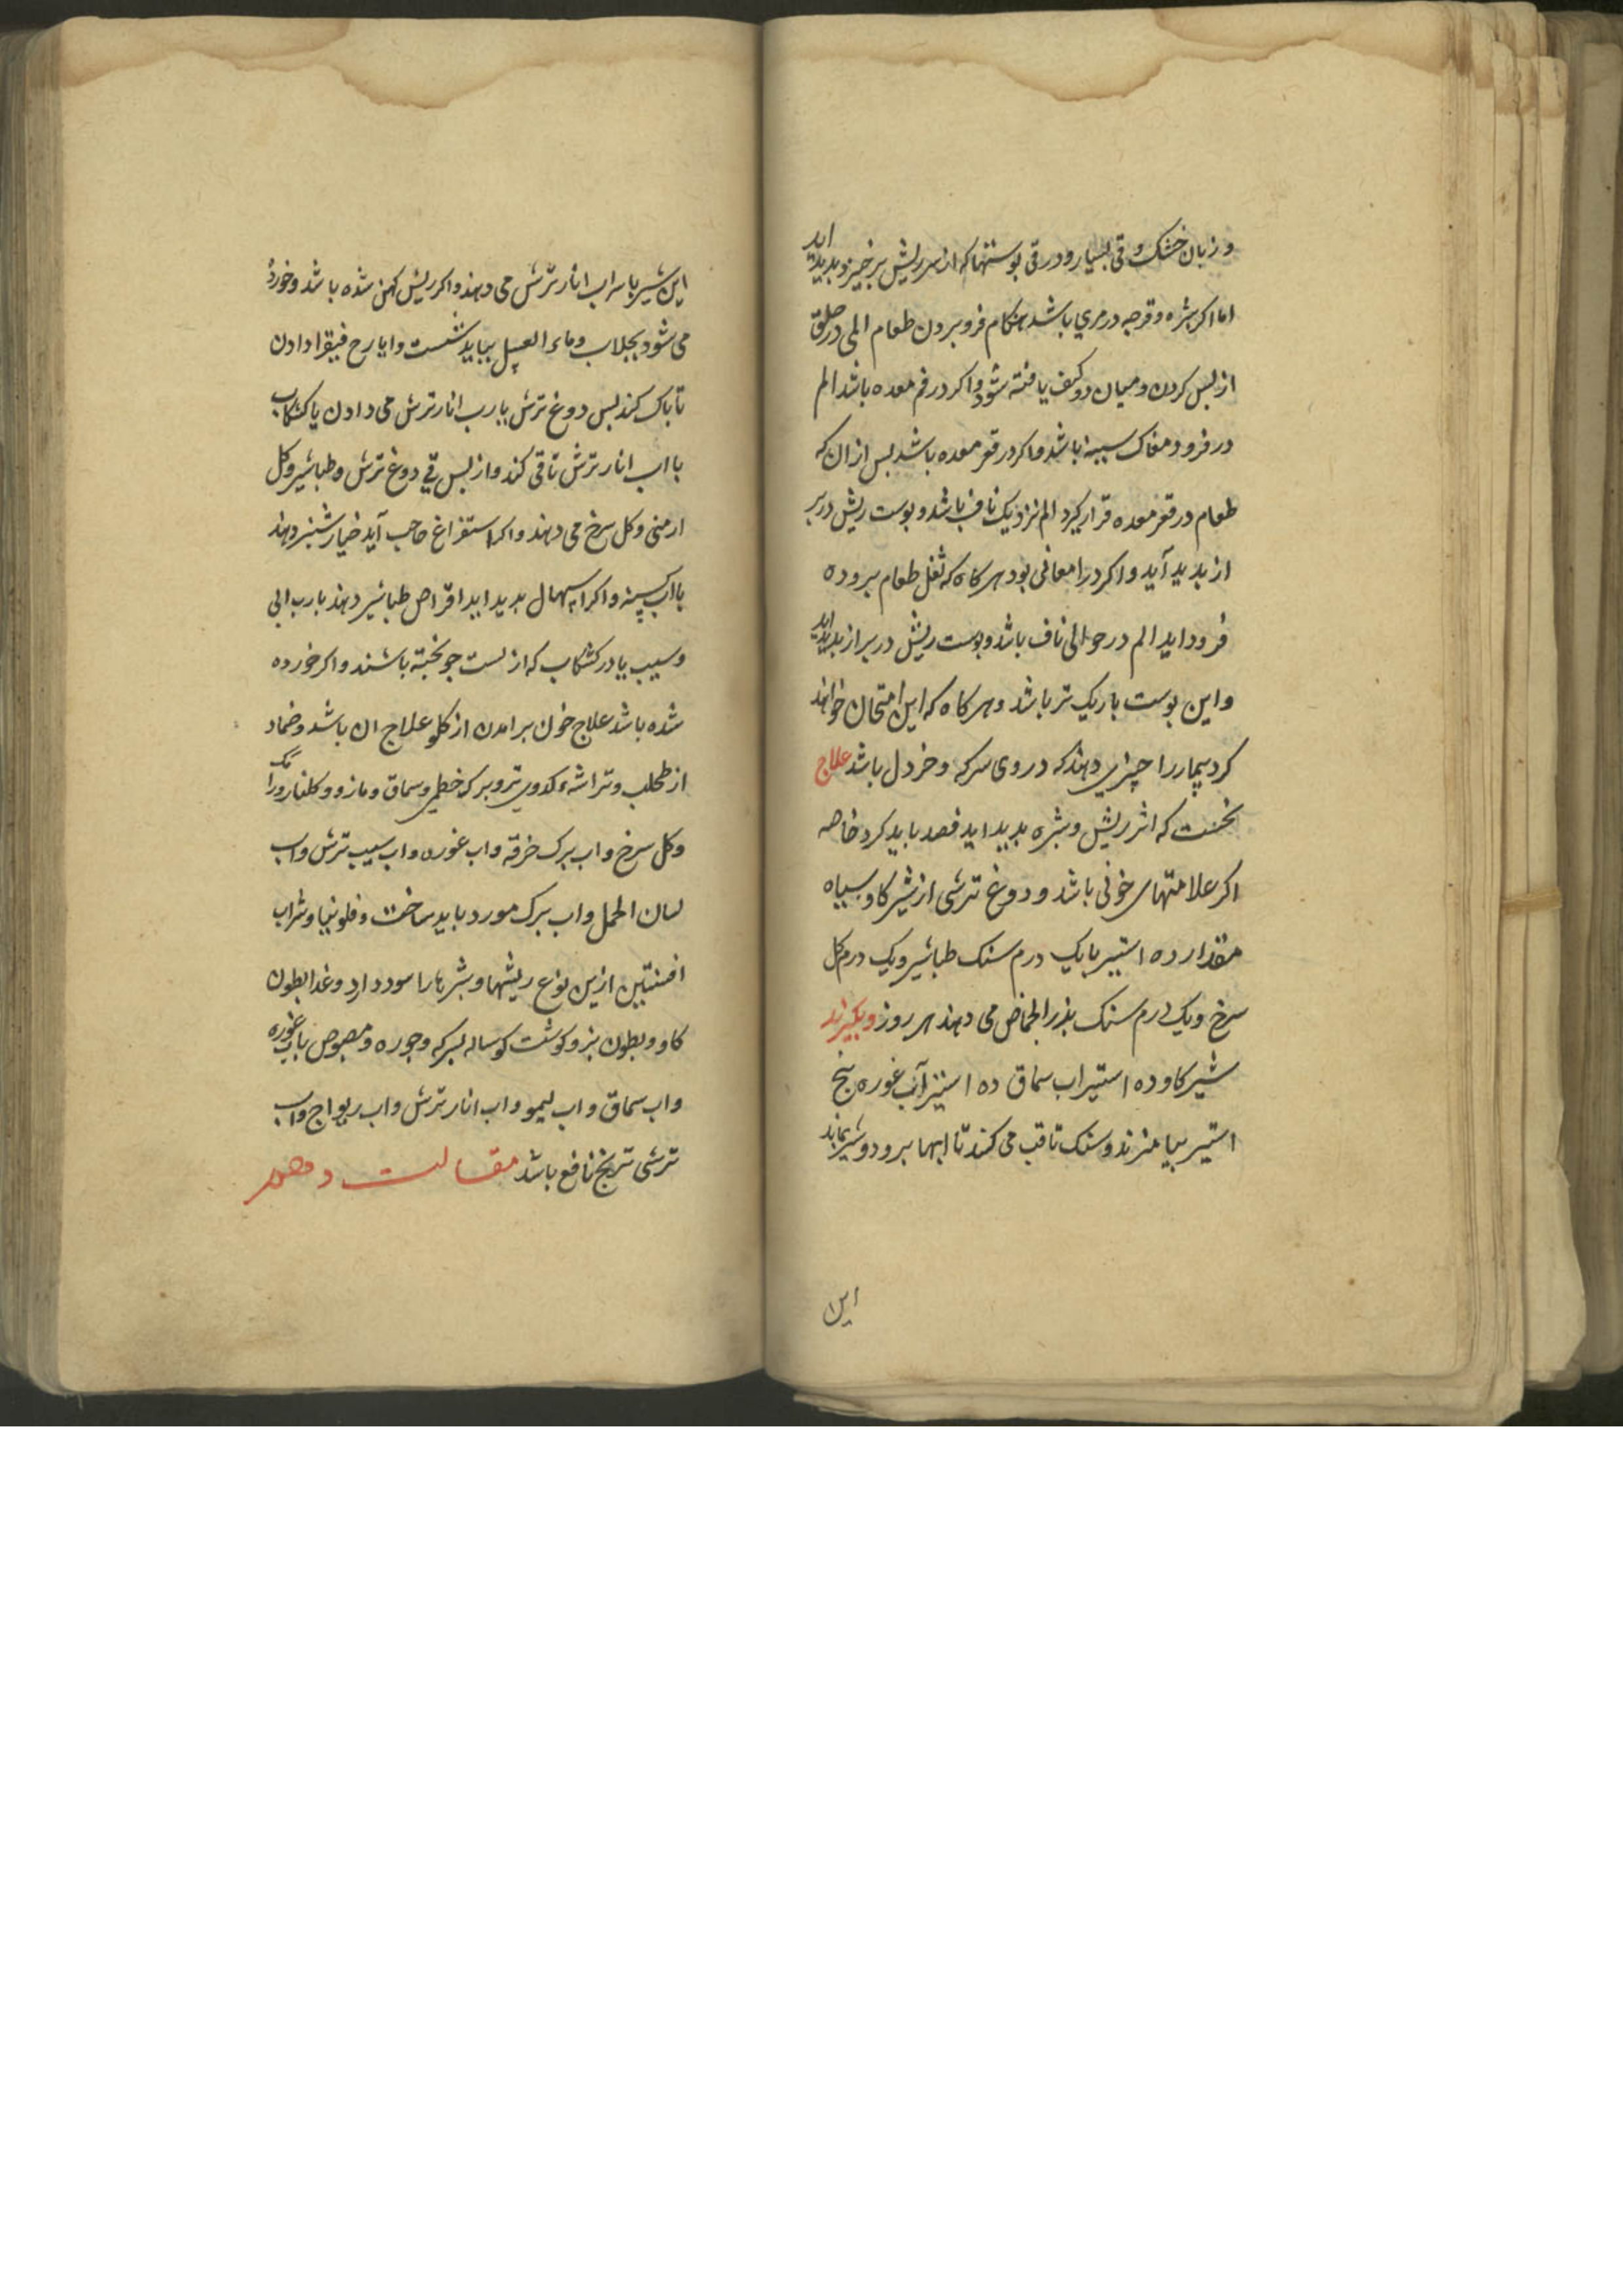 و زبان خشک و قی بسیار و در قی بوستها که از سر ریش برخیزد بدید اید
اما اکر بثره و قرحه در مری باشد هنکام فرو بردن طعام المی در حلق
از بس کردن و میان دو کتف یافته شود و اکر در فم معده باشد الم
در فرود مغاک سینه باشد و اکر در قعر معده باشد بس از ان که
طعام در قعر معده قرار کیرد الم نزدیک ناف باشد و بوست ریش در بر
از بدید آید و اکر در امعا بود هر کاه که ثفل طعام بروده
فرود اید الم در حوالی ناف باشد و بوست ریش در براز بدید اید
و این بوست باریک تر باشد و هر کاه که این امتحان خواهند
کرد بیمار را چیزی دهند که در وی سرکه و خردل باشد علاج
نخست که اثر ریش و بثره بدید اید فصد باید کرد خاصه
اکر علامتهای خونی باشد و دوغ ترشی از شیر کاو سیاه
مقدار ده استیر با یک درم سنک طباشیر و یک درم کل
سرخ و یک درم سنک بذر الحماض می دهند هر روز و بکیرند
شیر کاو ده استیر اب سماق ده استیر آب غوره بنج
استیر بیامیزند و سنک تافته می کنند تا ابها برود و شیر بماند
این
این شیر با سه اب انار ترش می دهند و اکر ریش کهن شده باشد و خورده
می شود بجلاب و ماء العسل بباید شست و ایارج فیقرا دادن
تا باک کند بس دوغ ترش با رب انار ترش می دادن یا کشکاب
با اب انار ترش تا قی کند و از بس قی دوغ ترش و طباشیر و کل
ارمنی و کل سرخ می دهند و اکر استفراغ حاجب آید خیار شنبر دهند
با اب کسنه و اکر اسهال بدید اید اقراص طباشیر دهند با رب ابی
و سیب یا در کشکاب که از بست جو بخته باشند و اکر خورده
شده باشد علاج خون برامدن از کلو علاج ان باشد و ضماد
از طحلب و تراشه کدوی تر و برک خطمی و سماق و مازو و کلنار و رامک
و کل سرخ و اب برک خرفه و اب غوره و اب سیب ترش و اب
لسان الحمل و اب برک مورد باید ساخت و فلونیا و شراب
افسنتین ازین نوع ریشها و بثرها را سود دارد و غذا بطون
کاو و بطون بز و کوشت کوساله بسرکه و جوره و مصوص باب غوره
و اب سماق و اب لیمو و اب انار ترش و اب ریواج و اب
ترشی ترنج نافع باشد مقالت دهم